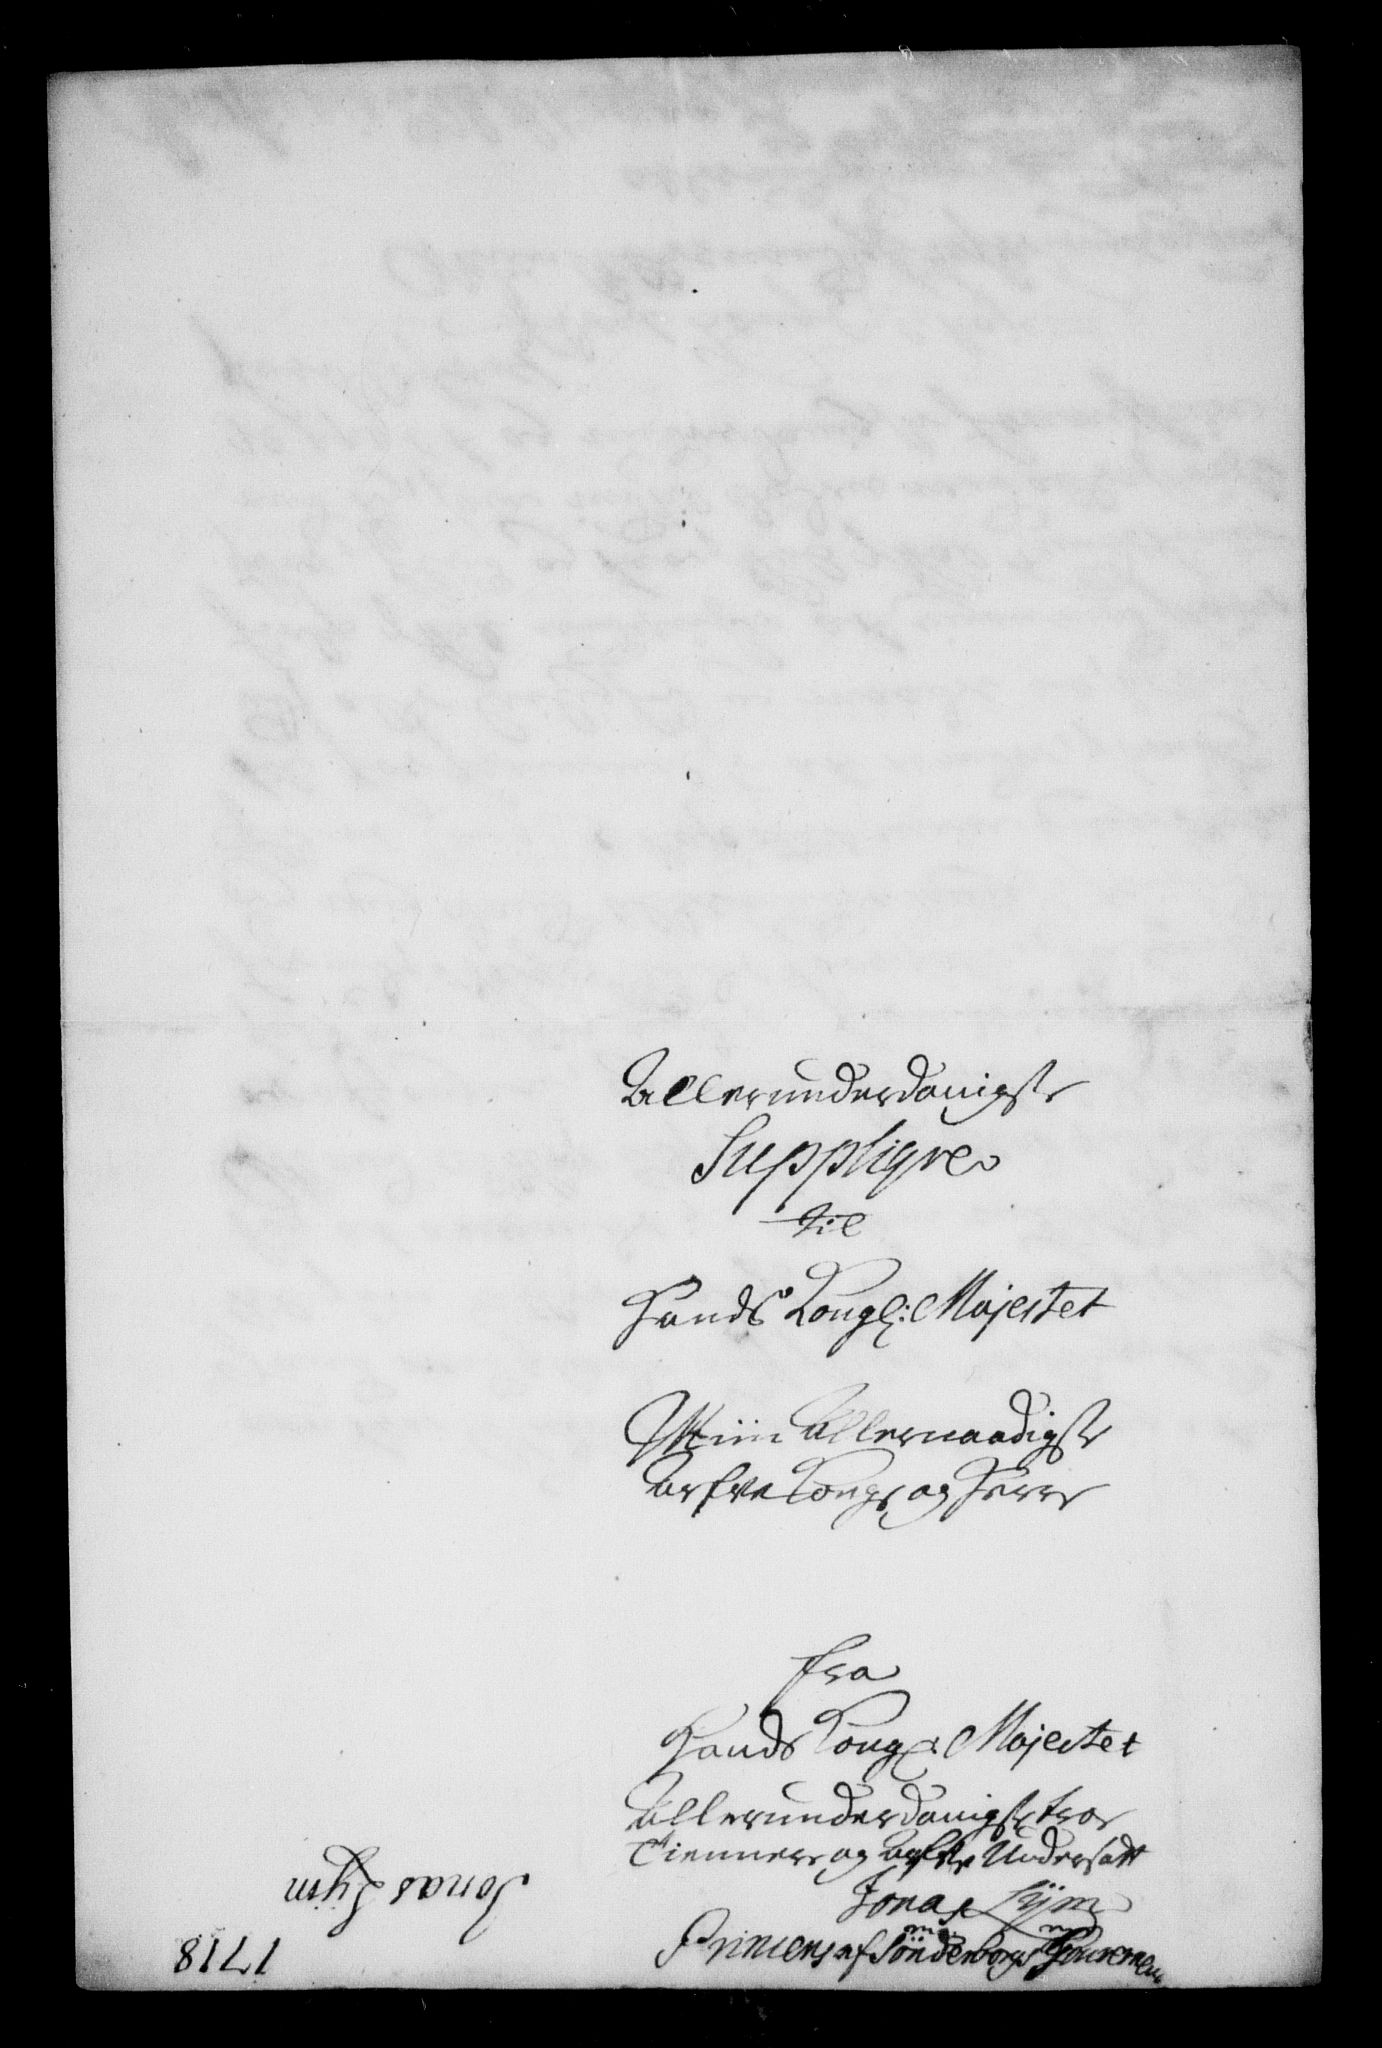 Allerunderdanigste
Suppliqve
til
Hands Kongl: Majestet
Min Allernaadigste
Arfve Konge og Herre
fra
Hands Kongl: Majestet
Allerunderdanigste troe
Tienner og Arfve Undersatt
Jonas Lÿm
Princens af Sönderborgs
Jonas Lÿm
1718